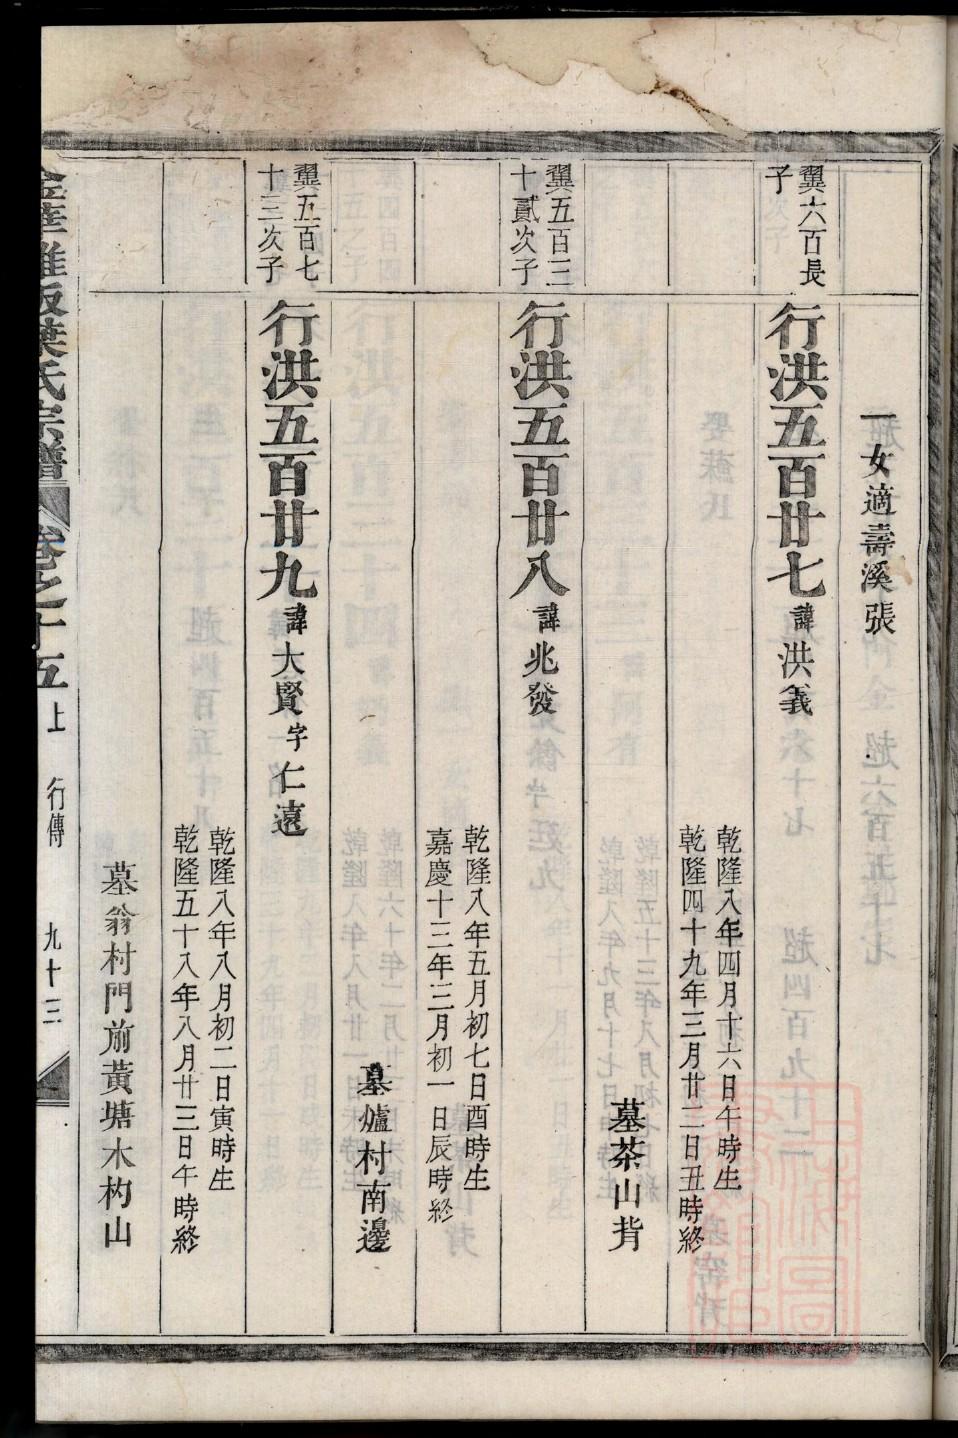 一女適壽溪張
翼六百長
子
行洪五百廿七諱洪義
乾隆八年四月十六日午時生
乾隆四十九年三月廿二日丑時終
墓茶山背
翼五百三
十貳次子
行洪五百廿八諱兆發
乾隆八年五月初七日酉時生
嘉慶十三年三月初一日辰時終
墓爐村南邊
翼五百七
十三次子
行洪五百廿九諱大賢字仁遠
乾隆八年八月初二日寅時生
乾隆五十八年八月廿三日午時終
墓翁村門前黃塘木杓山
金華雅坂葉氏宗譜 卷之十五上 行傳 九十三